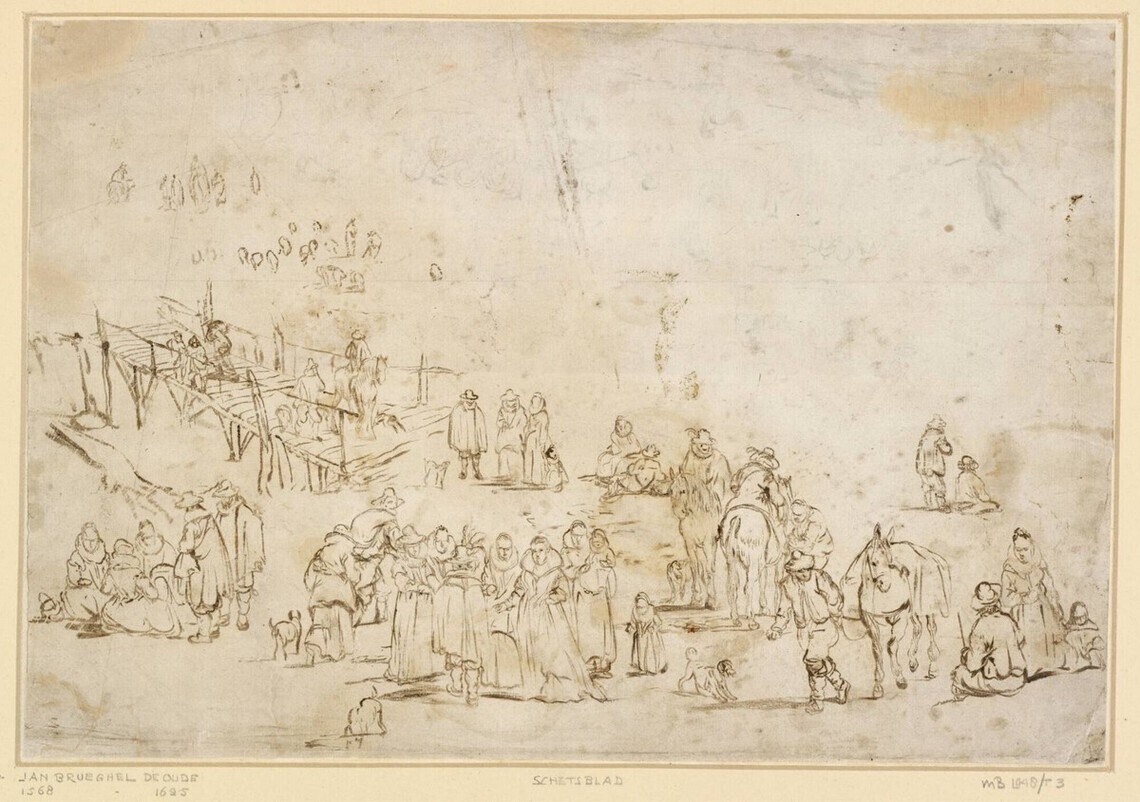 JAN BRUEGHEL DE OUDE
1568 - 1625
SCHETSBLAD
MB 1948/T 3